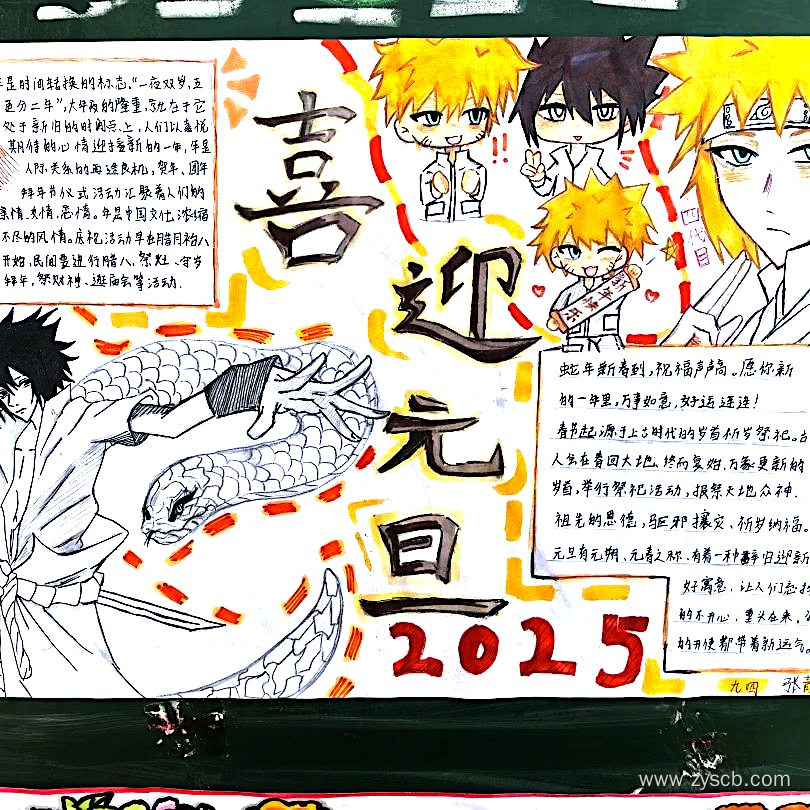 年是时间转换的标志。“一夜双岁，五
更分二年”，大年夜的隆重，就在于它
处于新旧的时间点上，人们以喜悦
期待的心情迎接新的一年，年是
人际关系的再造良机，贺年、团年
拜年节仪式活动汇聚着人们的
亲情、友情、恋情。年是中国文化浓缩
不尽的风情。庆祝活动早在腊月初八
开始，民间要进行腊八、祭灶、守岁
拜年、祭财神、逛庙会等活动.
喜
迎
元
旦
2025
!!
四代目
新年快乐
蛇年新春到，祝福声声高。愿你新
的一年里，万事如意，好运连连！
春节起源于上古时代的岁首祈岁祭祀。古
人会在春回大地、终而复始、万象更新的
岁首，举行祭祀活动，报祭天地众神、
祖先的恩德，驱邪攘灾、祈岁纳福。
元旦有元朔、元春之称、有着一种辞旧迎新
好寓意，让人们忘掉
的不开心，重头在来。
的开使都带着新运气。
九四 张
www.zyscb.com